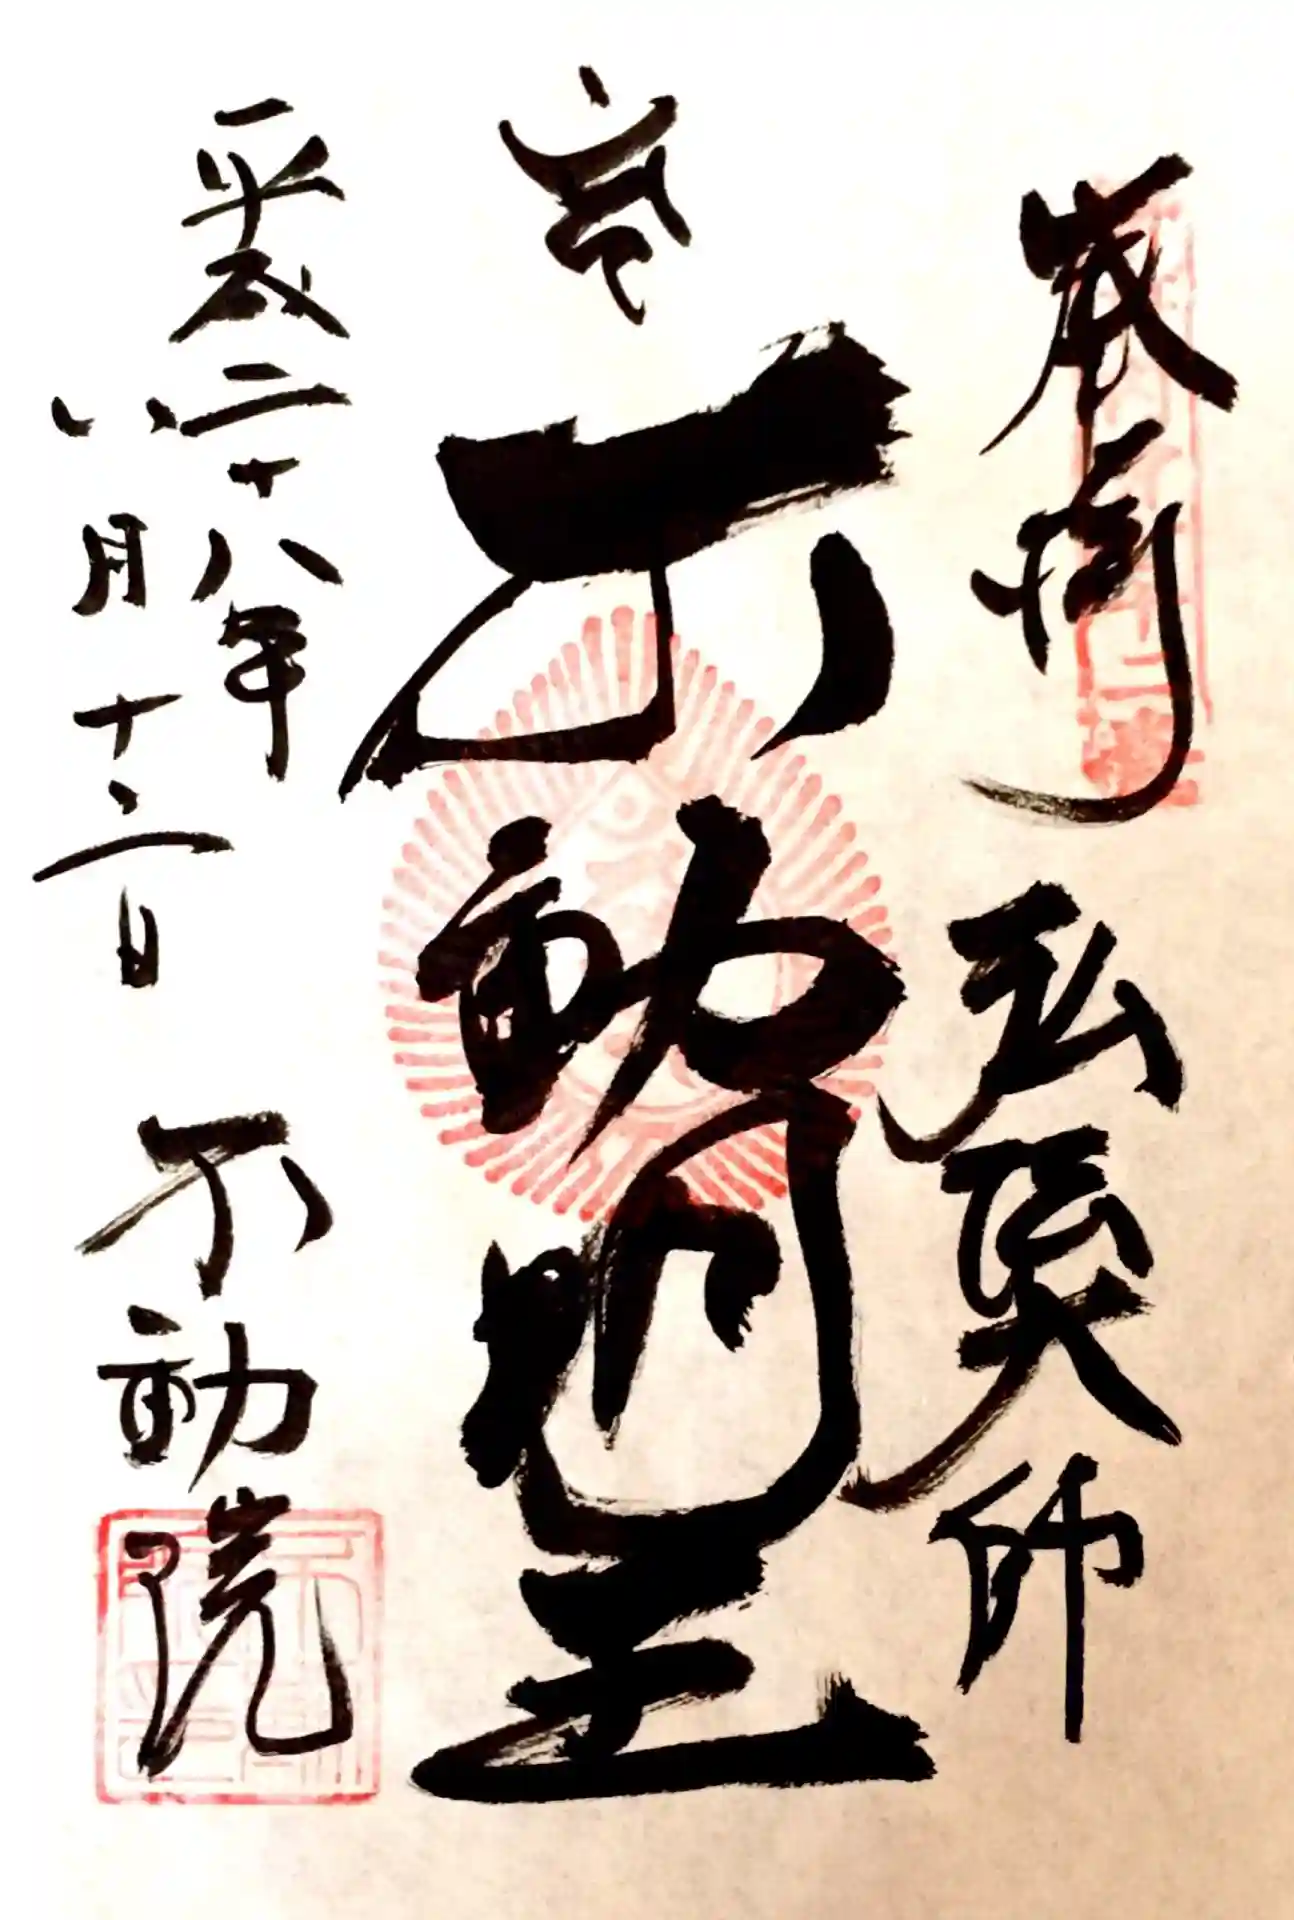 奉拝 弘法大師
不動明王
平成二十八年
八月十二日 不動院